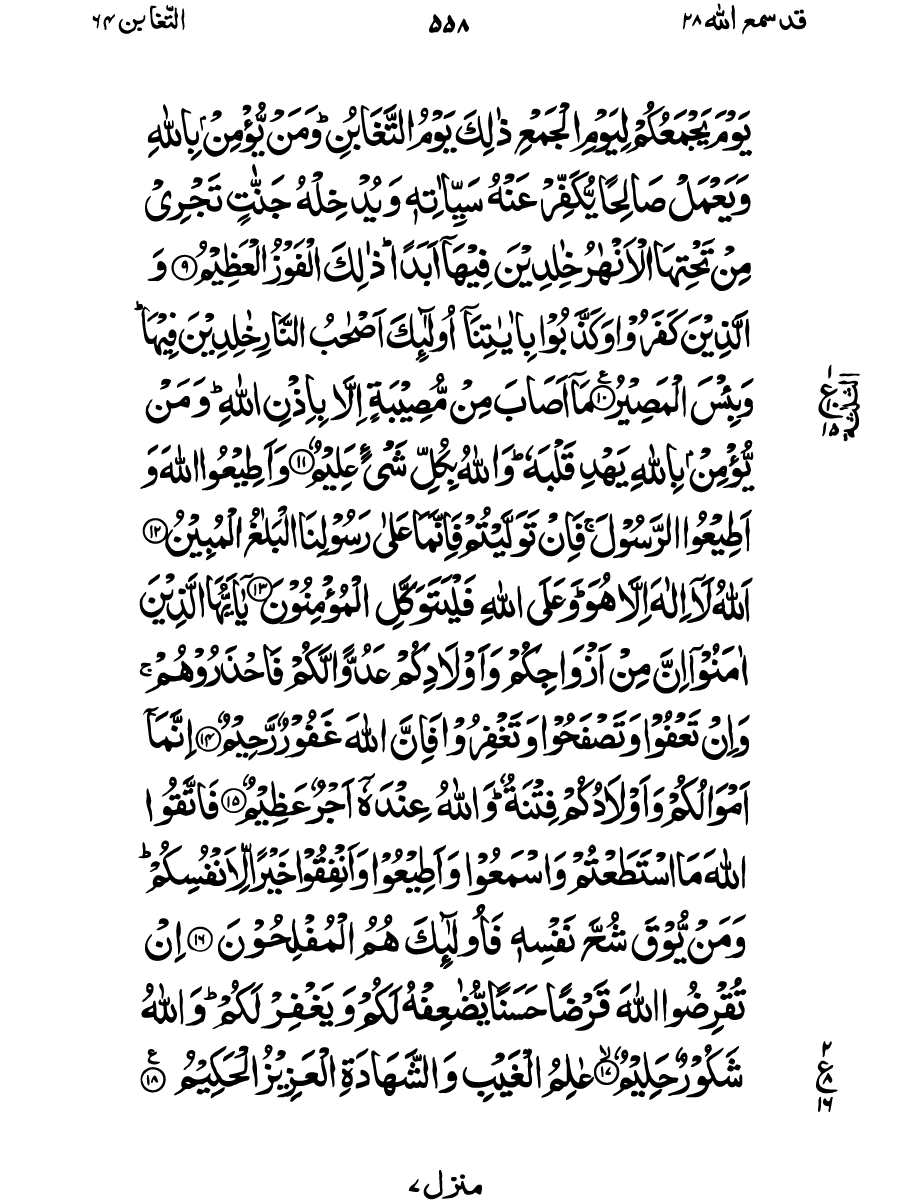 قد سمع اللہ ۲۸ ۵۵۸ التّغابن ۶۴
يَوْمَ يَجْمَعُكُمْ لِيَوْمِ الْجَمْعِ ذٰلِكَ يَوْمُ التَّغَابُنِ ؕ وَمَنْ يُّؤْمِنْۢ بِاللّٰهِ
وَيَعْمَلْ صَالِحًا يُّكَفِّرْ عَنْهُ سَيِّاٰتِهٖ وَيُدْخِلْهُ جَنّٰتٍ تَجْرِىْ
مِنْ تَحْتِهَا الْاَنْهٰرُ خٰلِدِيْنَ فِيْهَاۤ اَبَدًا ؕ ذٰلِكَ الْفَوْزُ الْعَظِيْمُ ﴿۹﴾ وَ
الَّذِيْنَ كَفَرُوْا وَكَذَّبُوْا بِاٰيٰتِنَاۤ اُولٰٓئِكَ اَصْحٰبُ النَّارِ خٰلِدِيْنَ فِيْهَا ؕ
وَبِئْسَ الْمَصِيْرُ ﴿۱۰﴾ ع مَاۤ اَصَابَ مِنْ مُّصِيْبَةٍ اِلَّا بِاِذْنِ اللّٰهِ ؕ وَمَنْ
يُّؤْمِنْۢ بِاللّٰهِ يَهْدِ قَلْبَهٗ ؕ وَاللّٰهُ بِكُلِّ شَىْءٍ عَلِيْمٌ ﴿۱۱﴾ وَاَطِيْعُوا اللّٰهَ وَ
اَطِيْعُوا الرَّسُوْلَ ۚ فَاِنْ تَوَلَّيْتُمْ فَاِنَّمَا عَلٰى رَسُوْلِنَا الْبَلٰغُ الْمُبِيْنُ ﴿۱۲﴾
اَللّٰهُ لَاۤ اِلٰهَ اِلَّا هُوَ ؕ وَعَلَى اللّٰهِ فَلْيَتَوَكَّلِ الْمُؤْمِنُوْنَ ﴿۱۳﴾ يٰۤاَيُّهَا الَّذِيْنَ
اٰمَنُوْۤا اِنَّ مِنْ اَزْوَاجِكُمْ وَاَوْلَادِكُمْ عَدُوًّا لَّكُمْ فَاحْذَرُوْهُمْ ۚ
وَاِنْ تَعْفُوْا وَتَصْفَحُوْا وَتَغْفِرُوْا فَاِنَّ اللّٰهَ غَفُوْرٌ رَّحِيْمٌ ﴿۱۴﴾ اِنَّمَاۤ
اَمْوَالُكُمْ وَاَوْلَادُكُمْ فِتْنَةٌ ؕ وَاللّٰهُ عِنْدَهٗۤ اَجْرٌ عَظِيْمٌ ﴿۱۵﴾ فَاتَّقُوا
اللّٰهَ مَا اسْتَطَعْتُمْ وَاسْمَعُوْا وَاَطِيْعُوْا وَاَنْفِقُوْا خَيْرًا لِّاَنْفُسِكُمْ ؕ
وَمَنْ يُّوْقَ شُحَّ نَفْسِهٖ فَاُولٰٓئِكَ هُمُ الْمُفْلِحُوْنَ ﴿۱۶﴾ اِنْ
تُقْرِضُوا اللّٰهَ قَرْضًا حَسَنًا يُّضٰعِفْهُ لَكُمْ وَيَغْفِرْ لَكُمْ ؕ وَاللّٰهُ
شَكُوْرٌ حَلِيْمٌ ﴿۱۷﴾ ۙ عٰلِمُ الْغَيْبِ وَالشَّهَادَةِ الْعَزِيْزُ الْحَكِيْمُ ﴿۱۸﴾ ع
۱
ع
۱۵
۲
ع
۸
۱۶
منزل ۷